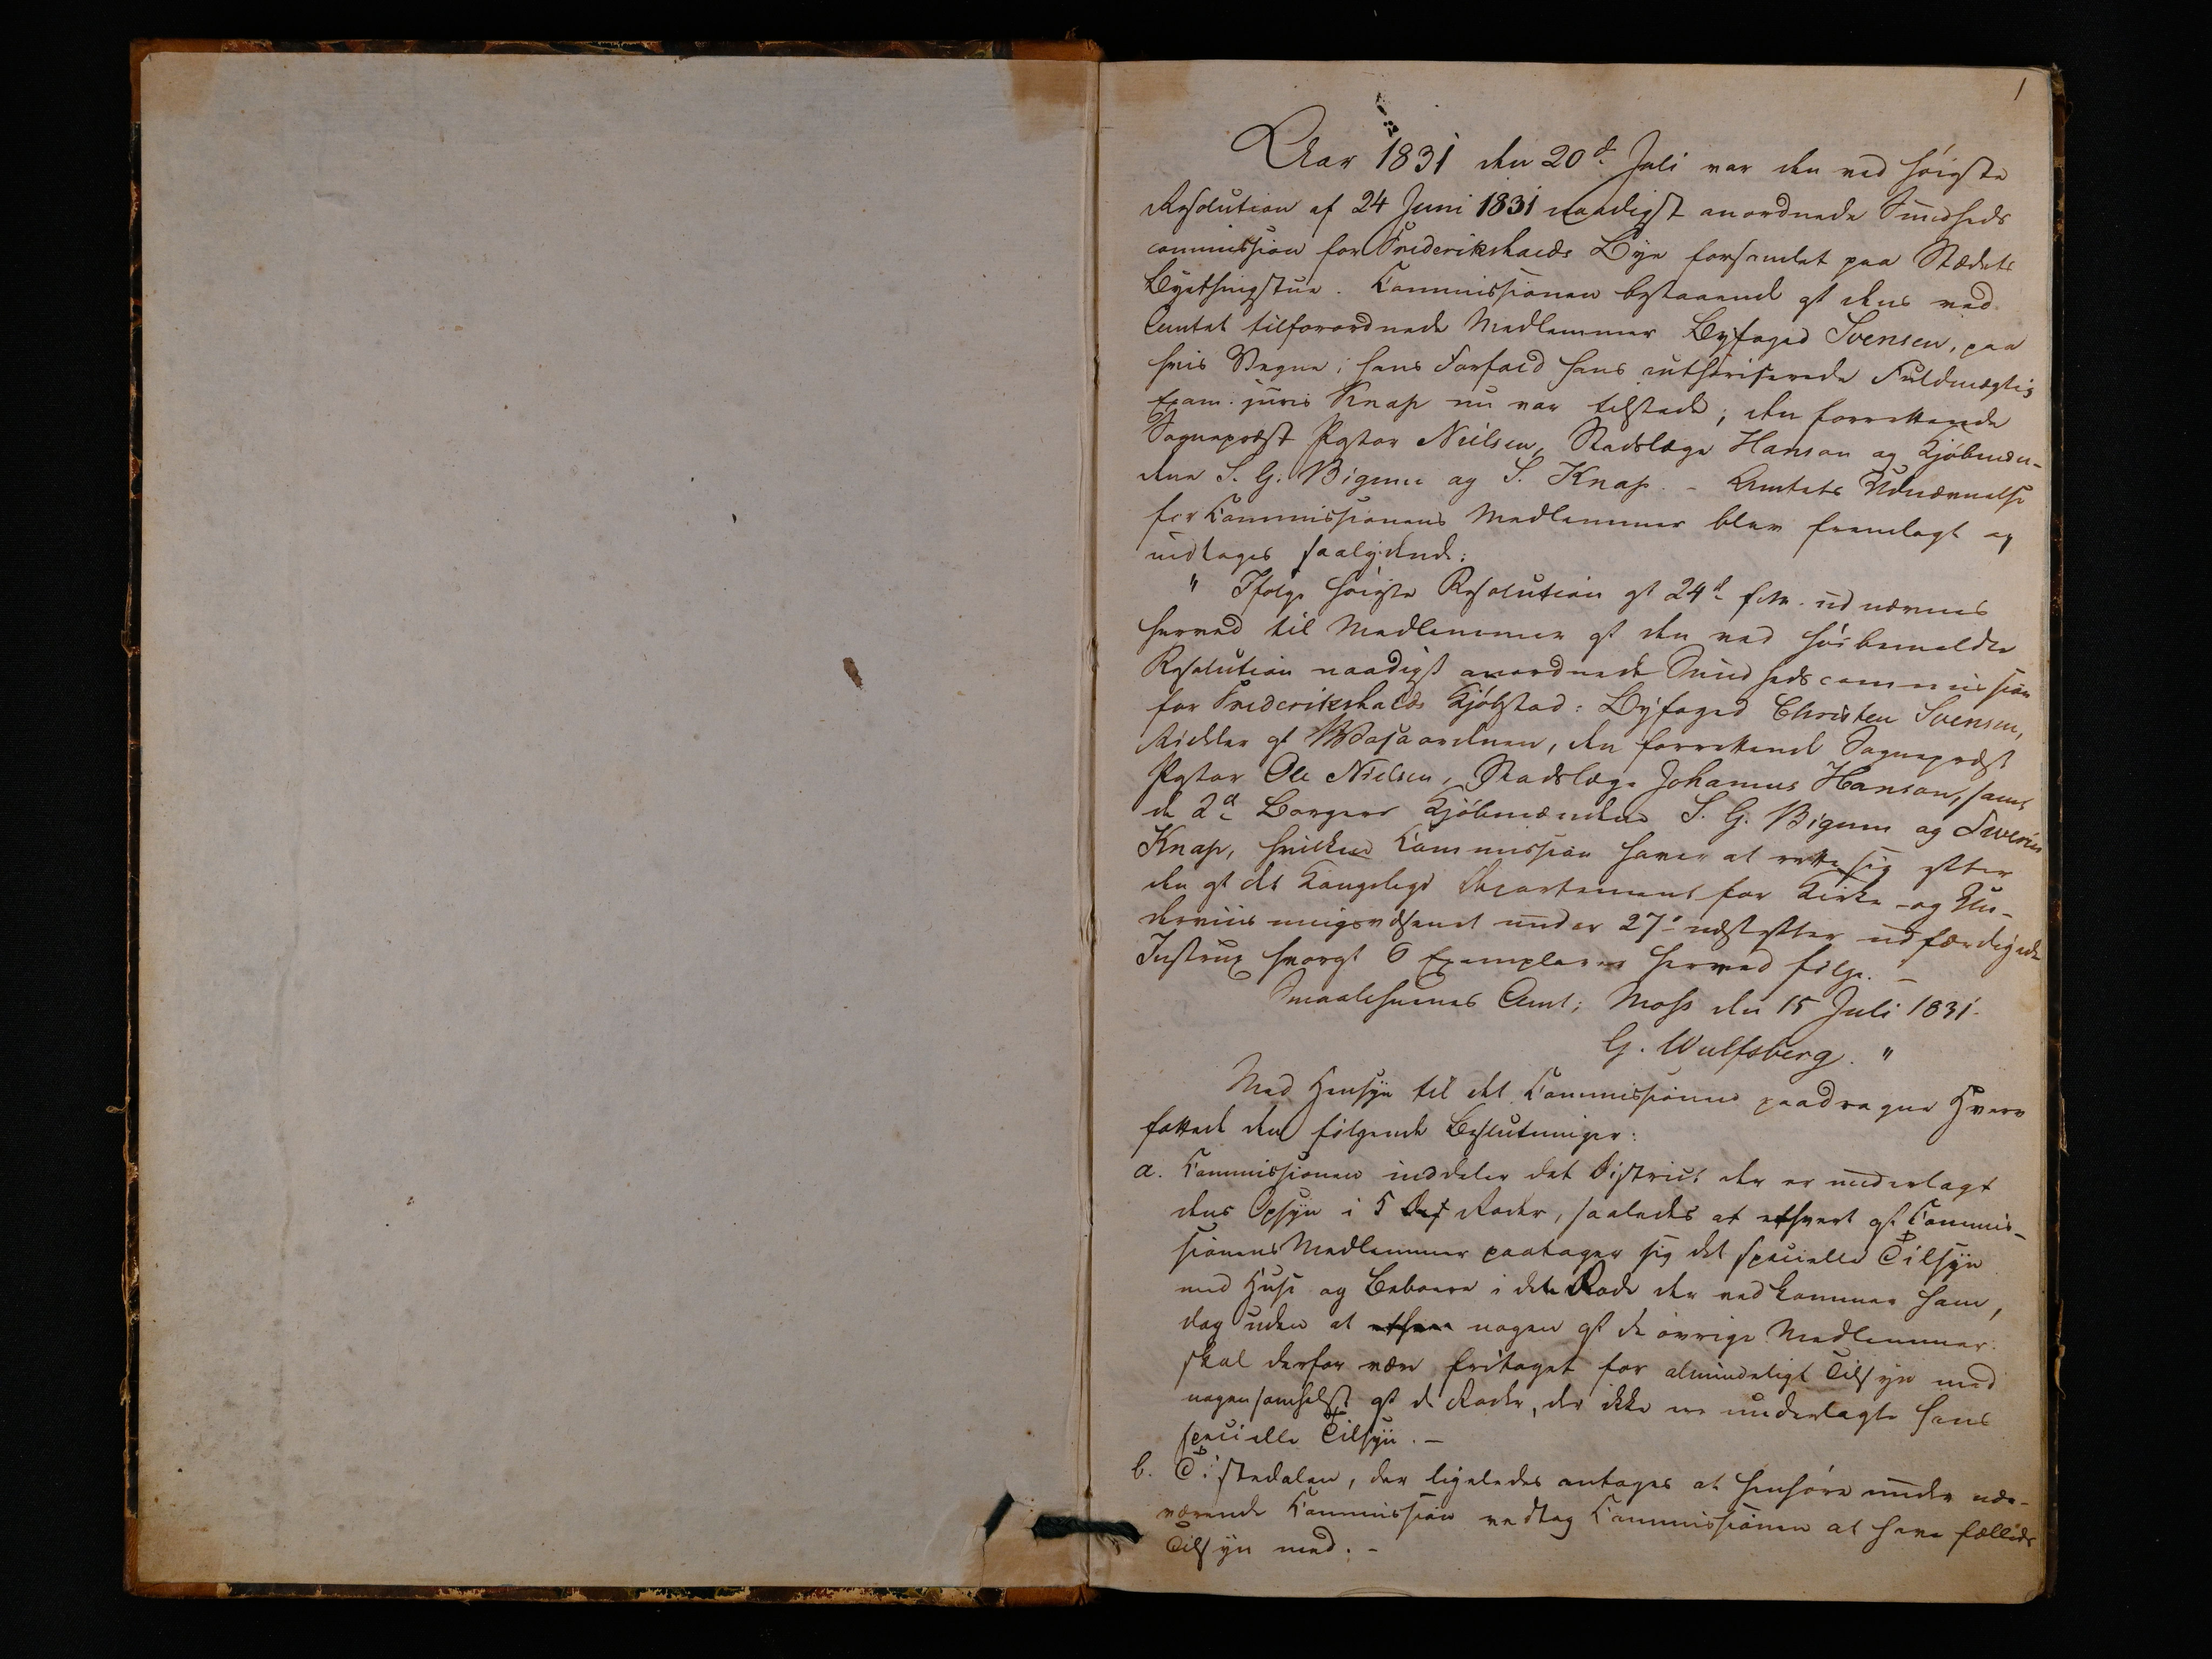 1
Aar 1831 den 20d Juli var den ved høieste
Resolution af 24 Juni 1831 naadigst anordnede Sundheds
commission for Frederikshalds Bye forsamlet paa Stædets
Byethingstue. Commissionen bestaaende af dens ved
Amtet tilforordnede Medlemmer Byfoged Svensen, paa
hvis Vegne i hans Forfald hans authoriserede Fuldmægtig
Exam. juris Knap nu var tilstede; den forrettende
Sognepræst Pastor Nielsen, Stadslæge Hanson og Kjøbmæn-
dene S. G. Bigum og S. Knap. - Amtets Udnævnelse
for Commissionens Medlemmer blev fremlagt og
indtages saalydende:
" Ifølge høieste Resolution af 24d f. M. udnævnes
herved til Medlemmer af den ved høibemeldte
Resolution naadigst anordnede Sundhedscommission
for Frederikshalds Kjøbstad: Byfoged Christen Svensen,
Ridder af Wasaordenen, den forrettende Sognepræst
Pastor Ole Nielsen, Stadslæge Johannes Hanson, samt
de 2de Borgere Kjøbmændene S. G. Bigum og Severin
Knap, hvilken Commission haver at rette sig efter
den af det Kongelige Departement for Kirke- og Un-
derviisningsvæsenet under 27de næstefter udfærdigede
Instrux hvoraf 6 Exemplarer herved følge. -
Smaalehnenes Amt; Moss den 15 Juli 1831.
G. Wulfsberg. "
Med Hensyn til det Commissionen paadragne Hverv
fattede den følgende Beslutninger:
a. Commissionen inddeler det District der er underlagt
dens Opsyn i 5 Roder, saaledes at ethvert af Commis-
sionens Medlemmer paatager sig det specielle Tilsyn
med Huse og Beboere i den Rode der vedkommer ham,
dog uden at nogen af de øvrige Medlemmer
skal derfor være fritaget for almindeligt Tilsyn med
nogensomhelst af de Roder, der ikke ere underlagte hans
specielle Tilsyn. -
b. Tistedalen, der ligeledes antages at henhøre under nær-
værende Commission vedtog Commissionen at have fælleds
Tilsyn med. -